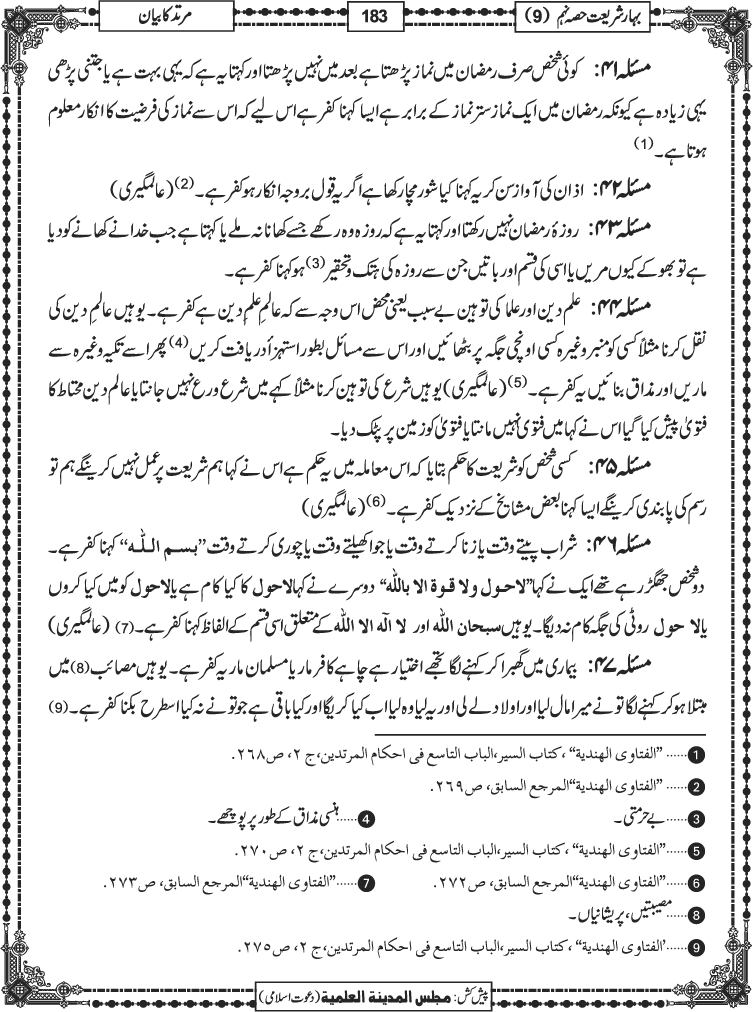 بہار شریعت حصہ نہم (9)
183
مرتد کا بیان
مسئلہ ۴۱: کوئی شخص صرف رمضان میں نماز پڑھتا ہے بعد میں نہیں پڑھتا اور کہتا یہ ہے کہ یہی بہت ہے یا جتنی پڑھی
یہی زیادہ ہے کیونکہ رمضان میں ایک نماز ستر نماز کے برابر ہے ایسا کہنا کفر ہے اس لیے کہ اس سے نماز کی فرضیت کا انکار معلوم
ہوتا ہے۔ (1)
مسئلہ ۴۲: اذان کی آواز سن کر یہ کہنا کیا شور مچار کھا ہے اگر یہ قول بروجہ انکار ہو کفر ہے۔ (2) (عالمگیری)
مسئلہ ۴۳: روزۂ رمضان نہیں رکھتا اور کہتا یہ ہے کہ روزہ وہ رکھے جسے کھانا نہ ملے یا کہتا ہے جب خدا نے کھانے کو دیا
ہے تو بھوکے کیوں مریں یا اسی قسم کی اور باتیں جن سے روزہ کی ہتک و تحقیر (3) ہو کہنا کفر ہے۔
مسئلہ ۴۴: علم دین اور علما کی توہین بے سبب یعنی محض اس وجہ سے کہ عالمِ علمِ دین ہے کفر ہے۔ یوہیں عالمِ دین کی
نقل کرنا مثلاً کسی کو منبر وغیرہ کسی اونچی جگہ پر بٹھائیں اور اس سے مسائل بطور استہزاً دریافت کریں (4) پھر اسے تکیہ وغیرہ سے
ماریں اور مذاق بنائیں یہ کفر ہے۔ (5) (عالمگیری) یوہیں شرع کی توہین کرنا مثلاً کہے میں شرع ورع نہیں جانتا یا عالم دین محتاط کا
فتویٰ پیش کیا گیا اس نے کہا میں فتویٰ نہیں مانتا یا فتویٰ کو زمین پر پٹک دیا۔
مسئلہ ۴۵: کسی شخص کو شریعت کا حکم بتایا کہ اس معاملہ میں یہ حکم ہے اس نے کہا ہم شریعت پر عمل نہیں کرینگے ہم تو
رسم کی پابندی کرینگے ایسا کہنا بعض مشایخ کے نزدیک کفر ہے۔ (6) (عالمگیری)
مسئلہ ۴۶: شراب پیتے وقت یا زنا کرتے وقت یا جوا کھیلتے وقت یا چوری کرتے وقت ”بسم اللہ“ کہنا کفر ہے۔
دو شخص جھگڑ رہے تھے ایک نے کہا ”لاحول ولا قوۃ الا باللہ“ دوسرے نے کہا لاحول کا کیا کام ہے یا لاحول کو میں کیا کروں
یا لا حول روٹی کی جگہ کام نہ دیگا۔ یوہیں سبحان اللہ اور لا الٰہ الا اللہ کے متعلق اسی قسم کے الفاظ کہنا کفر ہے۔ (7) (عالمگیری)
مسئلہ ۴۷: بیماری میں گھبرا کر کہنے لگا تجھے اختیار ہے چاہے کافر مار یا مسلمان مار یہ کفر ہے۔ یوہیں مصائب (8) میں
مبتلا ہو کر کہنے لگا تو نے میرا مال لیا اور اولاد لے لی اور یہ لیا وہ لیا اب کیا کریگا اور کیا باقی ہے جو تو نے نہ کیا اسطرح بکنا کفر ہے۔ (9)
1 ...... ”الفتاوی الهندية“ ،کتاب السير،الباب التاسع فی احکام المرتدين،ج ۲، ص۲۶۸.
2 ...... ”الفتاوی الهندية“المرجع السابق، ص۲۶۹.
3 ...... بے حرمتی۔ 4 ...... ہنسی مذاق کے طور پر پوچھے۔
5 ...... ”الفتاوی الهندية“ ،کتاب السير،الباب التاسع فی احکام المرتدين،ج ۲، ص۲۷۰.
6 ...... ”الفتاوی الهندية“المرجع السابق، ص۲۷۲. 7 ...... ”الفتاوی الهندية“المرجع السابق، ص۲۷۳.
8 ...... مصیبتیں، پریشانیاں۔
9 ...... ”الفتاوی الهندية“ ،کتاب السير،الباب التاسع فی احکام المرتدين،ج ۲، ص۲۷۵.
پیش کش: مجلس المدينة العلمية (دعوت اسلامی)